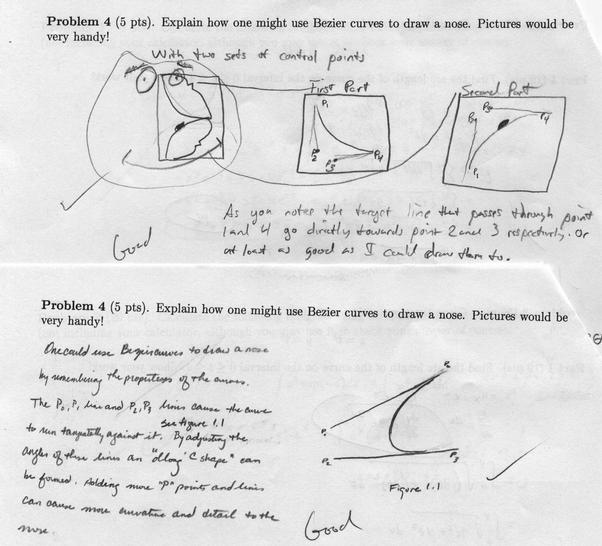 Problem 4 (5 pts). Explain how one might use Bezier curves to draw a nose. Pictures would be
very handy!
With two sets of control points
First Part
Second Part
P1
P2
P3
P4
P3
P2
P4
P1
As you notes the target line that passes through point
1 and 4 go directly towards point 2 and 3 respectively. Or
at least as good as I could draw them to.
Good
Problem 4 (5 pts). Explain how one might use Bezier curves to draw a nose. Pictures would be
very handy!
One could use Bezier curves to draw a nose
by remembering the properties of the curves.
The P0, P1 line and P2, P3 lines cause the curve
see figure 1.1
to run tangetally against it. By adjusting the
angles of these lines an "oblong C shape" can
be formed. Adding more "P" points and lines
can cause more curvature and detail to the
nose.
P1
P2
P3
Figure 1.1
Good